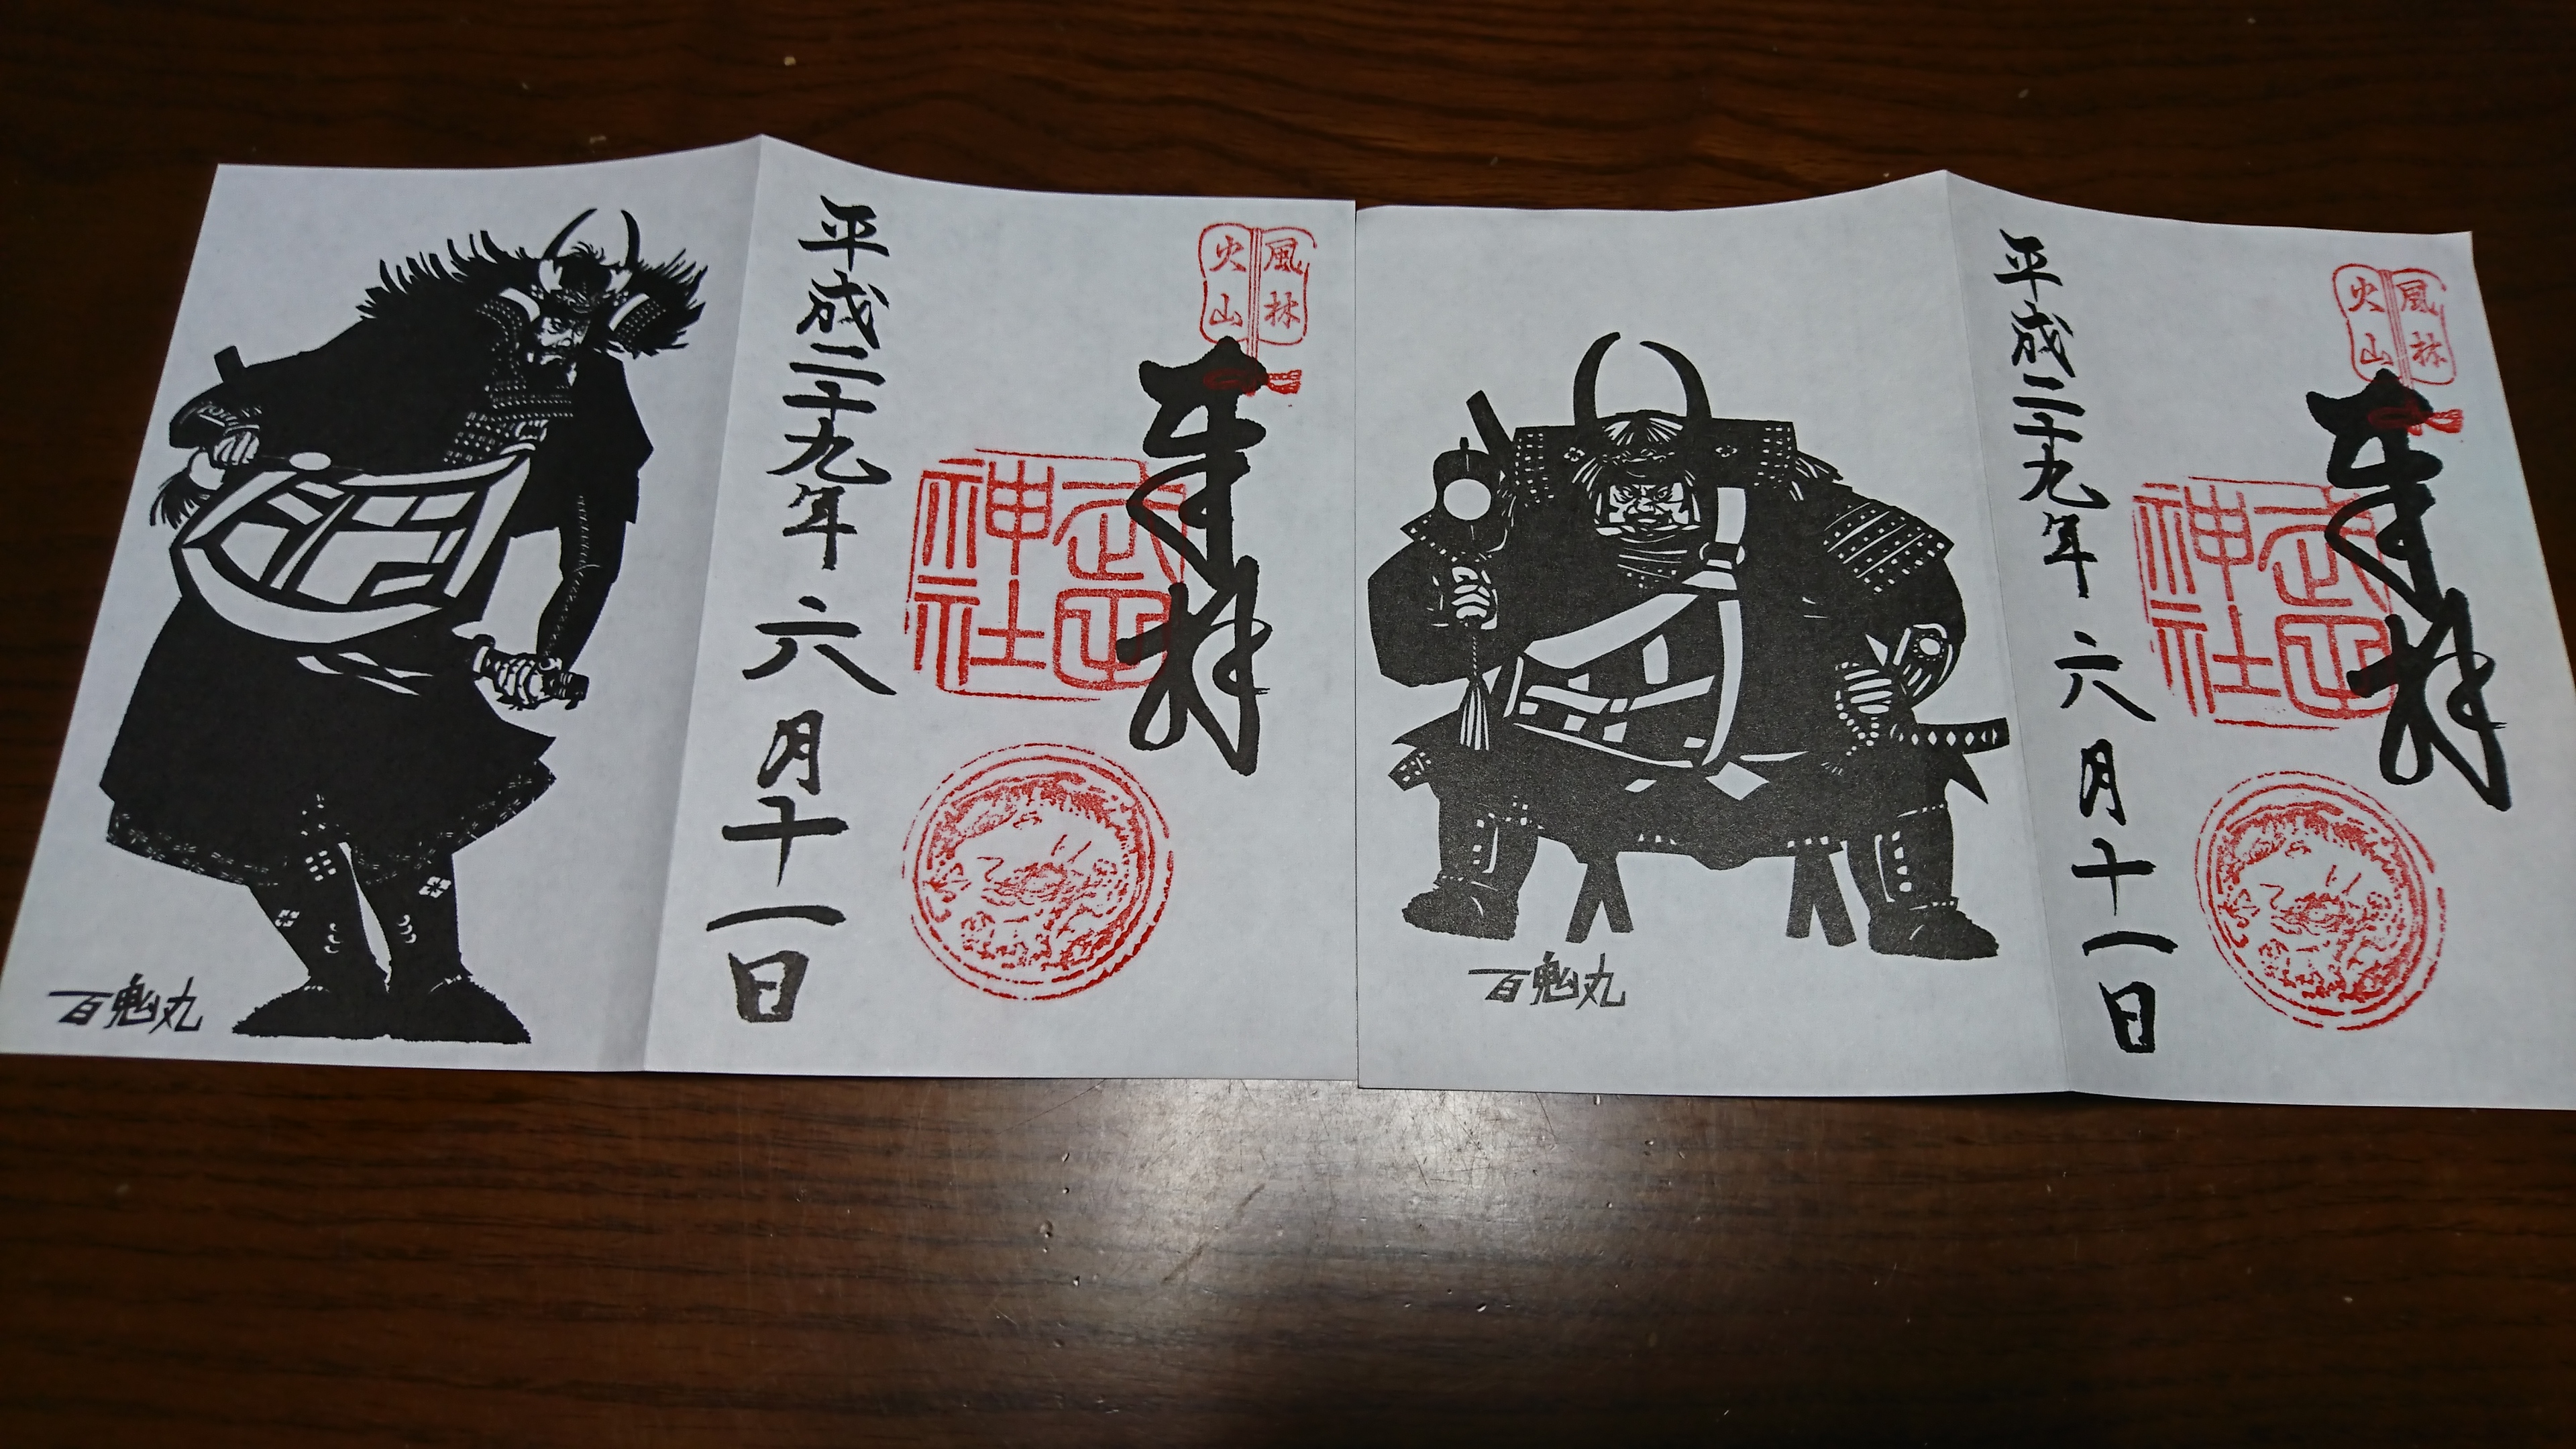 風林
火山
奉拝
武正
神社
平成二十九年六月十一日
百鬼丸
風林
火山
奉拝
武正
神社
平成二十九年六月十一日
百鬼丸